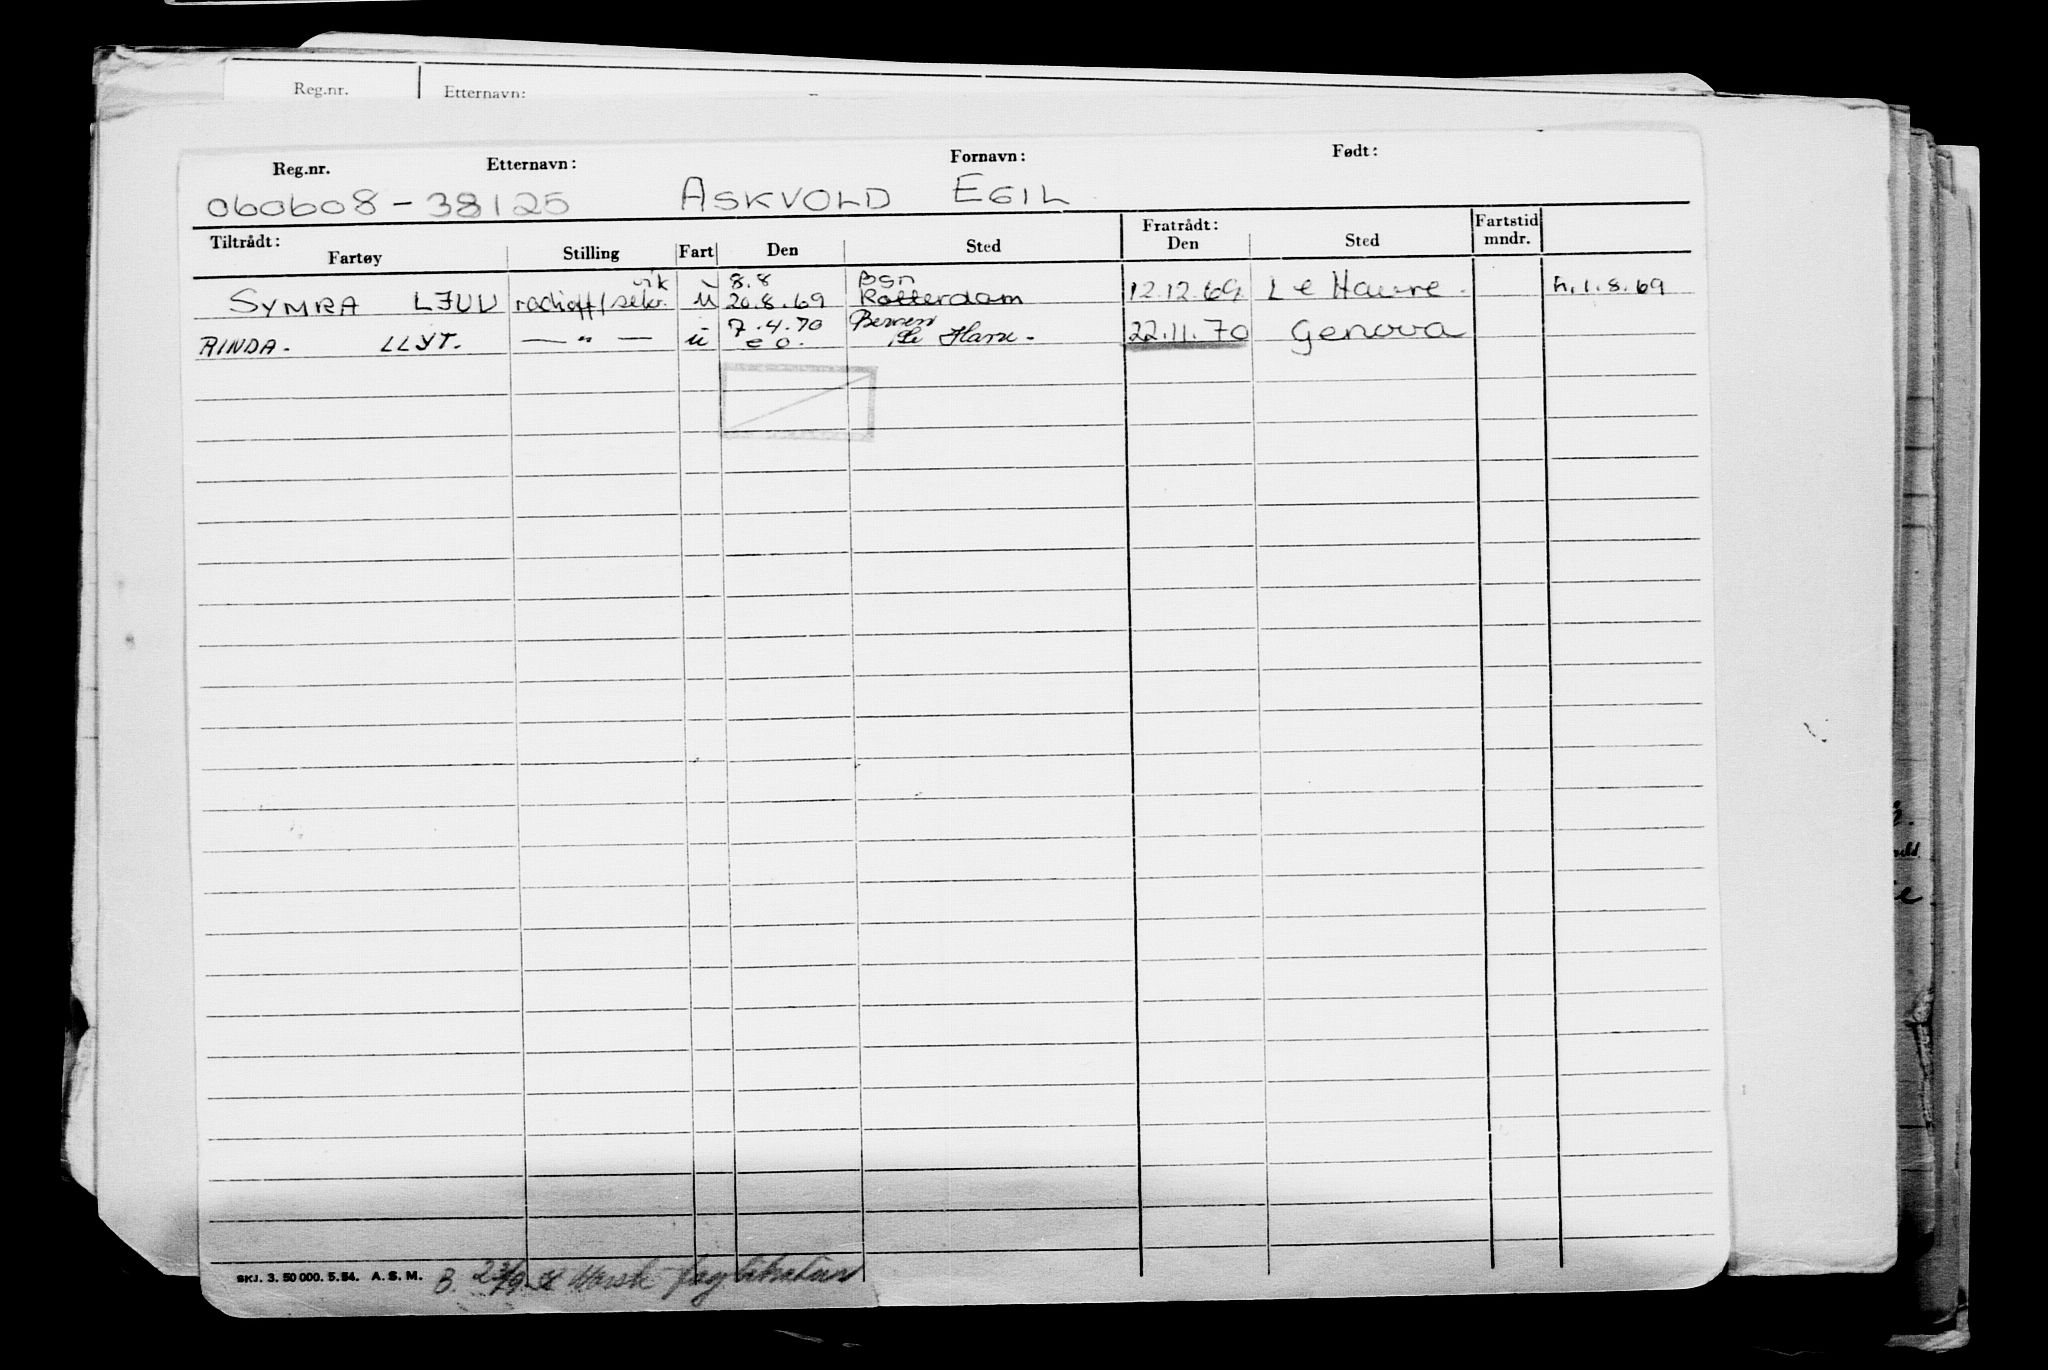 Reg.nr. Etternavn:
Reg.nr. Etternavn: Fornavn: Født:
060608-38125 ASKVOLD EGIL
Tiltrådt: Fratrådt: Fartstid
Fartøy Stilling Fart Den Sted Den Sted mndr.
vik 8.8 Bgn
SYMRA LJUU radioff/sekr. u 20.8.69 Rotterdam 12.12.69 Le Havre. h.1.8.69
7.4.70 Bergen
RINDA. LLYT. — " — u e o. Le Havre. 22.11.70 Genova
SKJ. 3. 50 000. 5.54. A. S. M. B. 23/9 Norsk faglitteratur